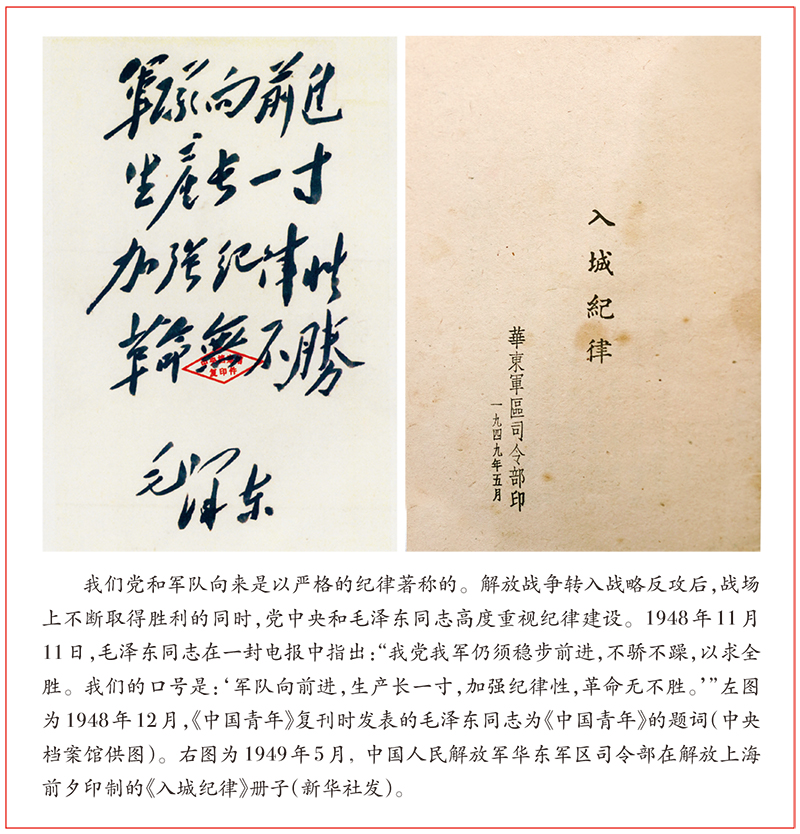 軍隊向前進
生產长一寸
加強纪律性
革命無不勝
复印件
毛泽东
入城紀律
華東軍區司令部印
一九四九年五月
我们党和军队向来是以严格的纪律著称的。解放战争转入战略反攻后,战场
上不断取得胜利的同时,党中央和毛泽东同志高度重视纪律建设。1948年11月
11日,毛泽东同志在一封电报中指出:“我党我军仍须稳步前进,不骄不躁,以求全
胜。我们的口号是:‘军队向前进,生产长一寸,加强纪律性,革命无不胜。’”左图
为1948年12月,《中国青年》复刊时发表的毛泽东同志为《中国青年》的题词(中央
档案馆供图)。右图为1949年5月,中国人民解放军华东军区司令部在解放上海
前夕印制的《入城纪律》册子(新华社发)。